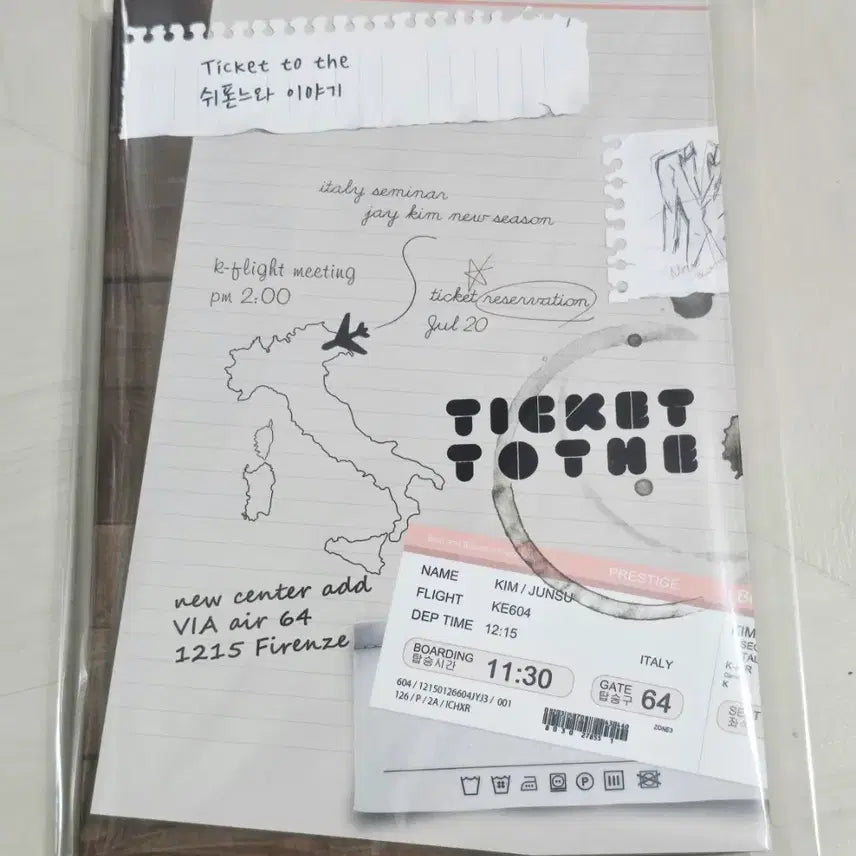 Ticket to the
쉬폰느와 이야기
italy seminar
jay kim new season
k-flight meeting
pm 2:00
ticket reservation
Jul 20
TICKET
TO THE
new center add
VIA air 64
1215 Firenze
PRESTIGE
NAME KIM / JUNSU
FLIGHT KE604
DEP TIME 12:15
BOARDING 11:30
탑승시간
ITALY
GATE 64
탑승구
604 / 12150126604JYJ3 / 001
126 / P / 2A / ICHXR
ZONE3